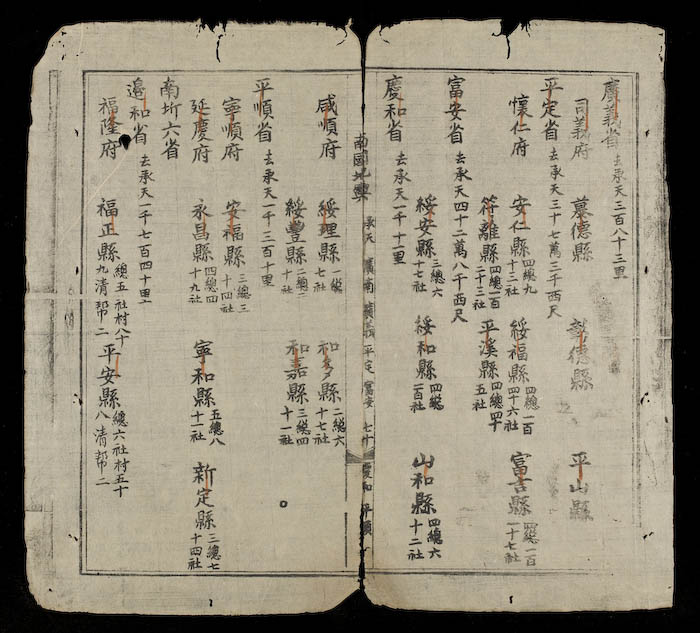 廣義省 去承天三百八十三里
司義府 慕德縣 彰德縣 平山縣
平定省 去承天三十七萬三千西尺
懷仁府 安仁縣 四總九十三社 綏福縣 四總一百四十六社 富吉縣 四總一百一十七社
符離縣 四總一百二十三社 平溪縣 四總四十五社
富安省 去承天四十二萬八千西尺
綏安縣 三總六十七社 綏和縣 四總一百社 山和縣 四總六十二社
慶和省 去承天一千十一里
南國地輿 承天 廣南 廣義 平定 富安 七十 慶和 平順
咸順府 綏理縣 一總七社 和多縣 二總六十七社
綏豐縣 二總三十社 和嘉縣 三總四十一社
平順省 去承天一千三百十里
寧順府 安福縣 三總三十四社
延慶府 永昌縣 四總四十九社 寧和縣 五總八十一社 新定縣 三總七十四社
南圻六省
邊和省 去承天一千七百四十里
福隆府 福正縣 總五社村八十九清幫二 平安縣 總六社村五十八清幫二